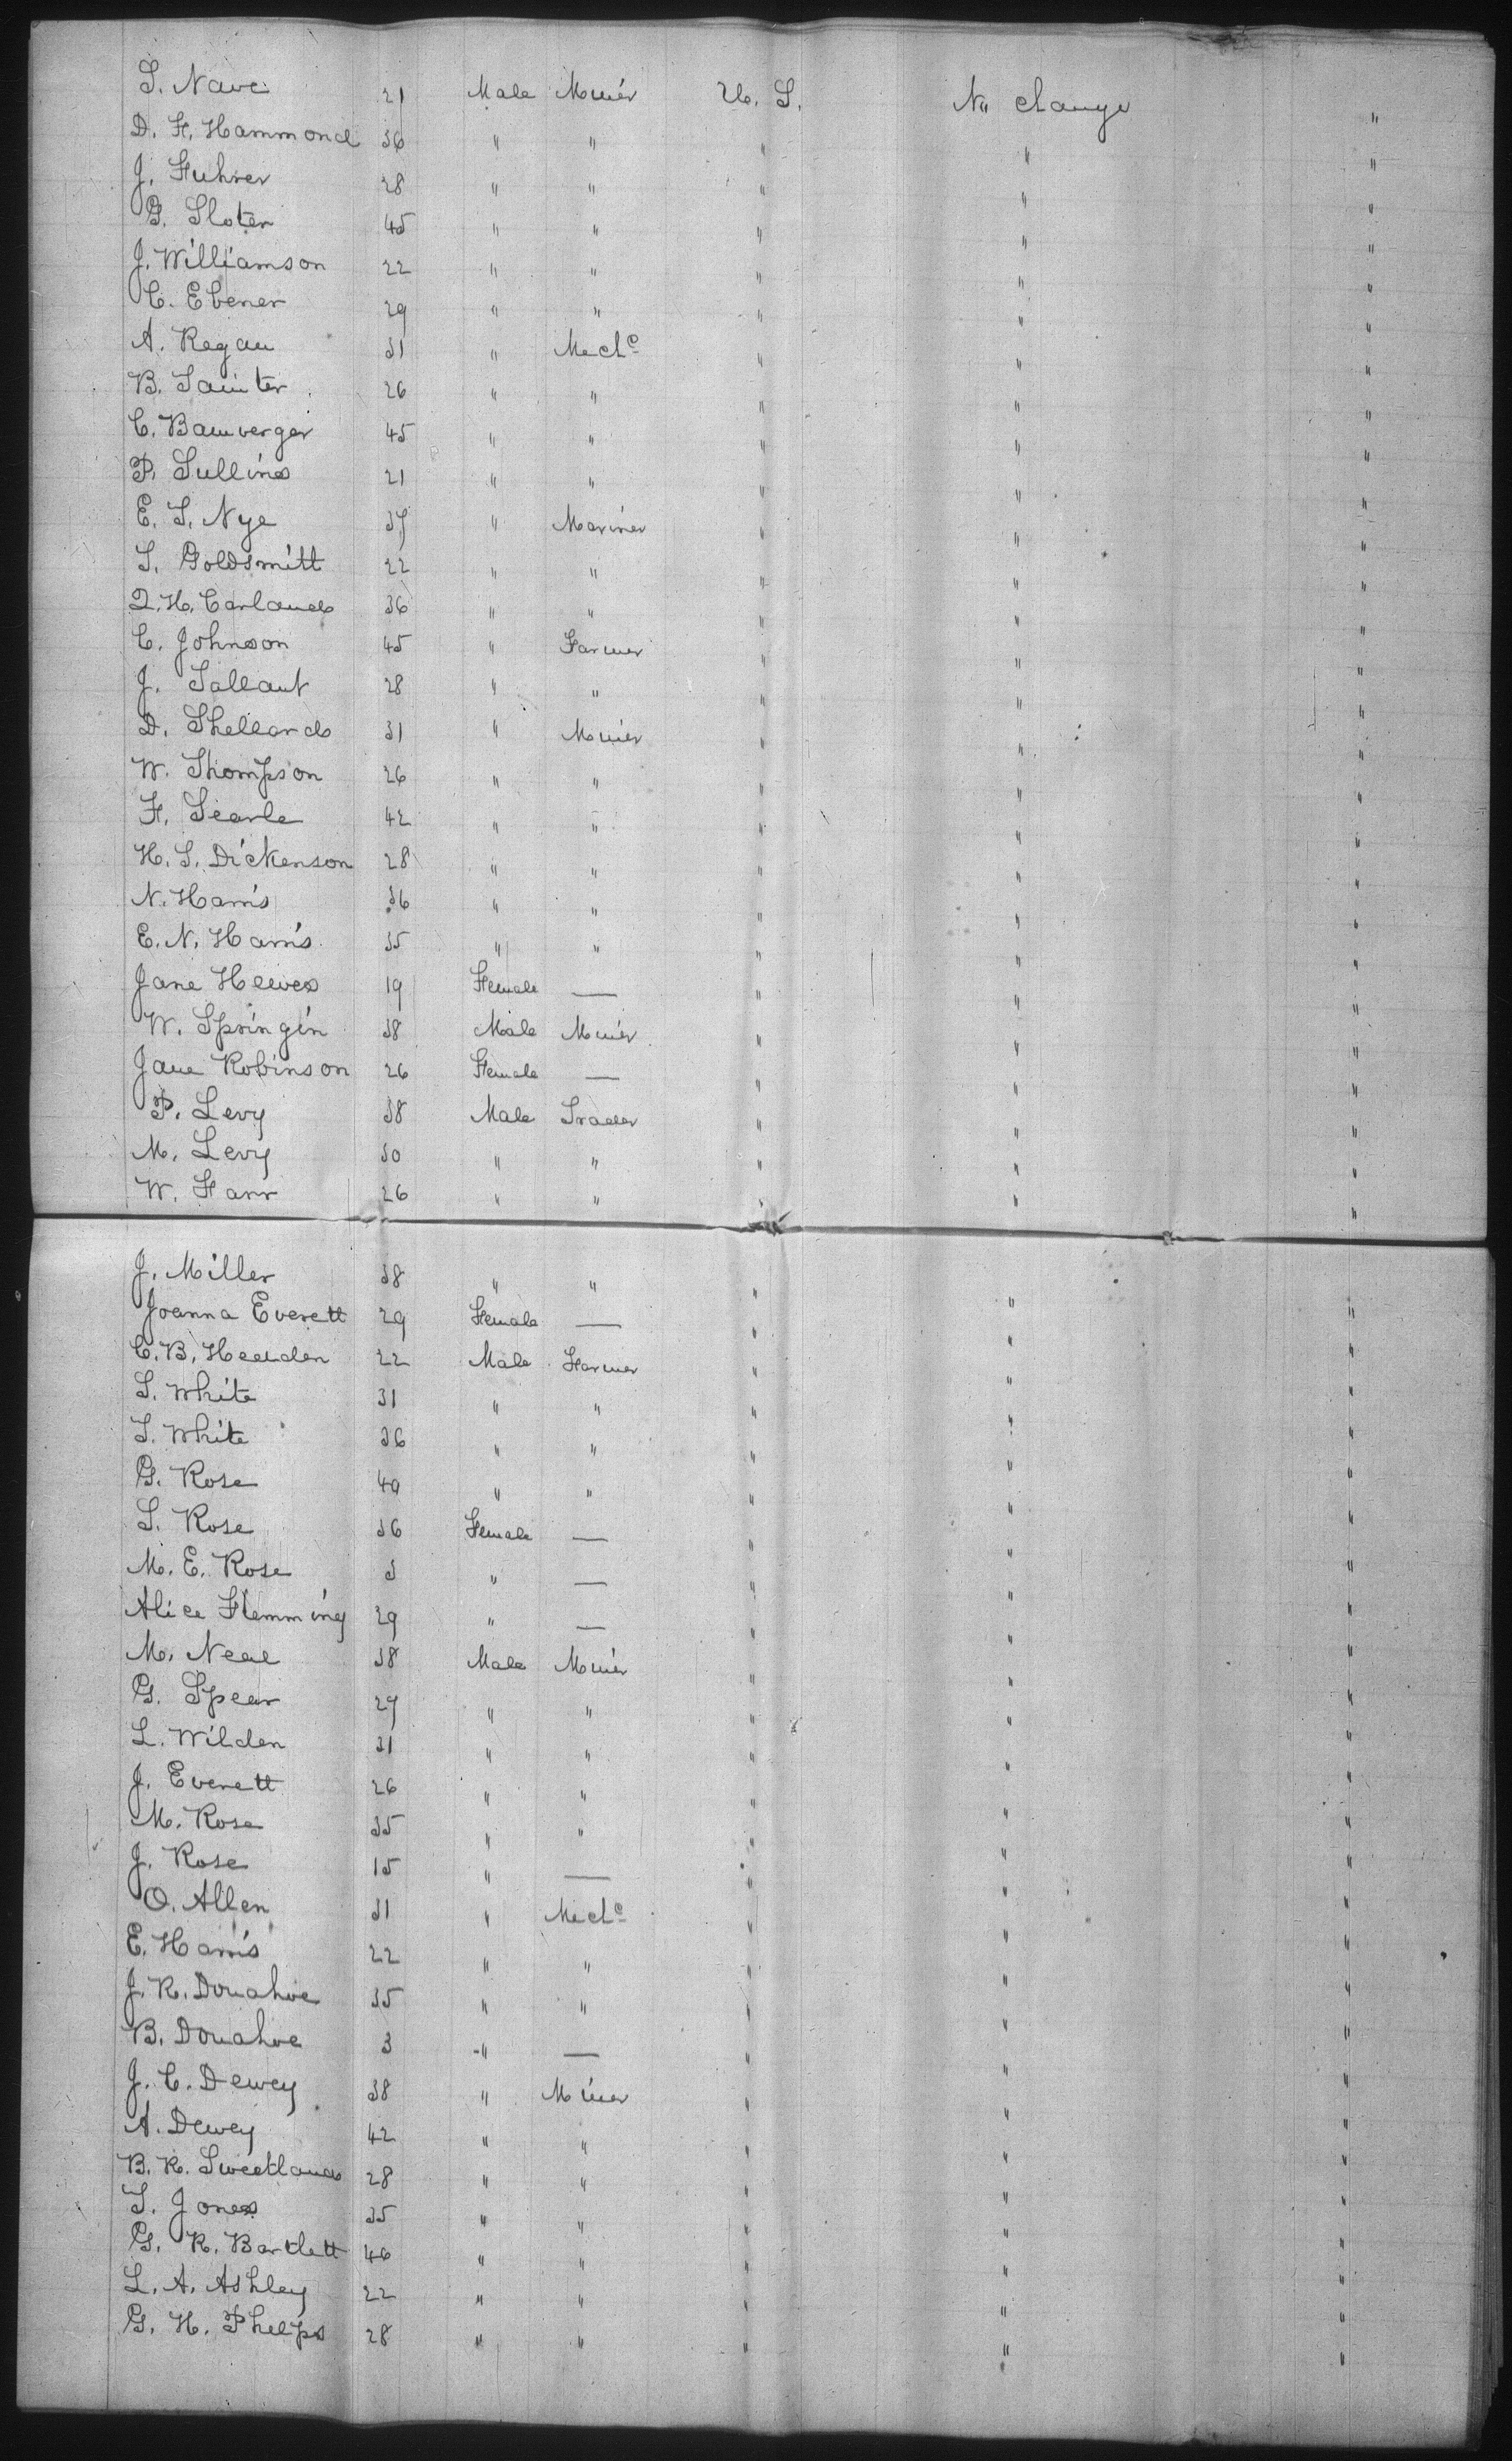 S. Nave 21 Male Miner U. S. No change "
D. F. Hammond 36 " " " " "
J. Fuhrer 28 " " " " "
G. Sloter 45 " " " " "
J. Williamson 22 " " " " "
C. Ebener 29 " " " " "
A. Regan 31 " Mechc " " "
B. Sainter 26 " " " " "
C. Bamverger 45 " " " " "
P. Sullins 21 " " " " "
E. S. Nye 37 " Mariner " " "
S. Goldsmitt 22 " " " " "
Q. H. Carland 36 " " " " "
C. Johnson 45 " Farmer " " "
J. Sallant 28 " " " " "
D. Shellard 31 " Miner " " "
W. Thompson 26 " " " " "
F. Searle 42 " " " " "
H. S. Dickenson 28 " " " " "
N. Harris 36 " " " " "
E. N. Harris 35 " " " " "
Jane Hewes 19 Female — " " "
W. Springin 38 Male Miner " " "
Jane Robinson 26 Female — " " "
P. Levy 38 Male Trader " " "
M. Levy 30 " " " " "
W. Farr 26 " " " " "
J. Miller 38 " " " " "
Joanna Everett 29 Female — " " "
C. B. Headen 22 Male Farmer " " "
S. White 31 " " " " "
S. White 36 " " " " "
G. Rose 40 " " " " "
S. Rose 36 Female — " " "
M. E. Rose 3 " — " " "
Alice Flemming 29 " — " " "
M. Neal 38 Male Miner " " "
G. Spear 27 " " " " "
L. Wilden 31 " " " " "
J. Everett 26 " " " " "
M. Rose 35 " " " " "
J. Rose 15 " — " " "
O. Allen 31 " Mechc " " "
E. Harris 22 " " " " "
J. R. Donahoe 35 " " " " "
B. Donahoe 3 " — " " "
J. C. Dewey 38 " Miner " " "
A. Dewey 42 " " " " "
B. R. Sweetland 28 " " " " "
S. Jones 35 " " " " "
G. R. Bartlett 46 " " " " "
L. A. Ashley 22 " " " " "
G. H. Phelps 28 " " " " "